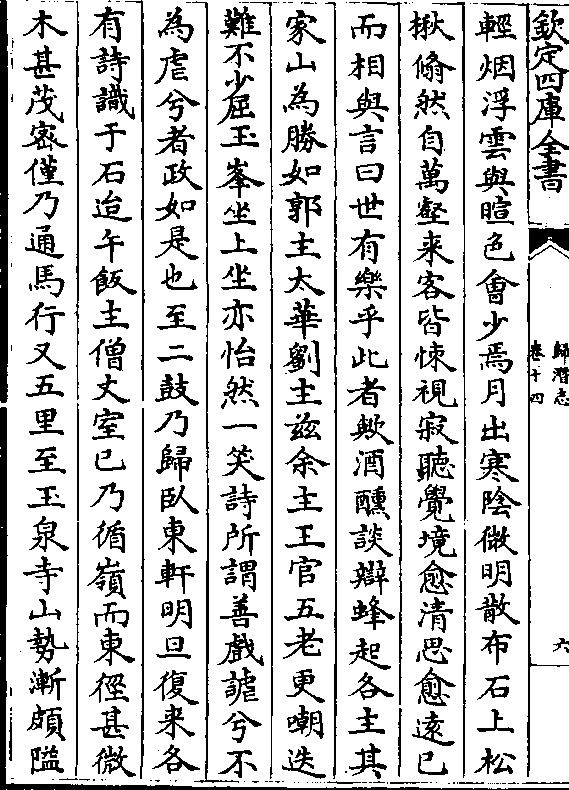 欽定四庫全書
歸潛志
卷十四
六
輕烟浮雲與暄色會少焉月出寒陰微明散布石上松
揪翛然自萬壑来客皆悚視寂聽覺境愈清思愈逺已
而相與言曰世有樂乎此者歟酒醺談辯蜂起各主其
家山為勝如郭主太華劉主兹余主王官五老更嘲迭
難不少屈玉峯坐上坐亦怡然一笑詩所謂善戲謔兮不
為虐兮者政如是也至二鼓乃歸臥東軒明旦復来各
有詩識于石迨午飯主僧丈室已乃循嶺而東徑甚微
木甚茂宻僅乃通馬行又五里至玉泉寺山勢漸頗隘